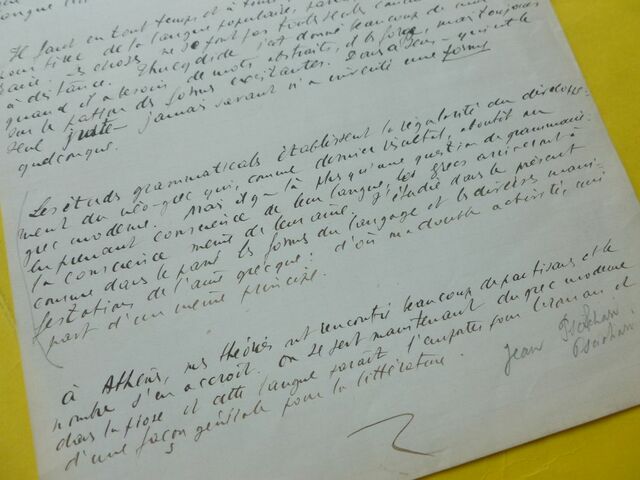 Il faut en tout temps et à tous
de la langue populaire,
choses ne se font pas toutes seules comme
à distance. Thucydide s'est donné beaucoup de mal
quand il a besoin de mots abstraits, il les forge, mais toujours
sur le patron des formes existantes. Dans ce sens — qui est le
seul juste — jamais savant n'a inventé une forme
quelconque.
Les études grammaticales établissent la régularité du développe-
ment du néo-grec qui, comme dernier résultat, aboutit au
grec moderne. Mais il y a là plus qu'une question de grammaire.
En prenant conscience de leur langue, les Grecs arriveront à
la conscience même de leur âme. J'étudie dans le présent
comme dans le passé les formes du langage et les diverses mani-
festations de l'âme grecque : d'où ma double activité, qui
part d'un même principe.
à Athènes, mes théories ont rencontré beaucoup de partisans et le
nombre s'en accroît. On se sert maintenant du grec moderne
dans la prose et cette langue paraît l'emporter pour le roman et
d'une façon générale pour la littérature.
Jean Psichari
Psichari